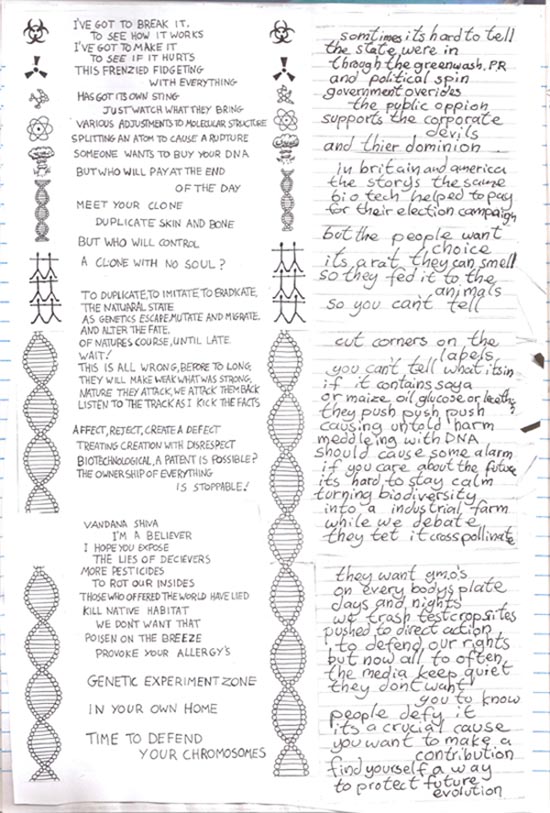 I'VE GOT TO BREAK IT,
TO SEE HOW IT WORKS
I'VE GOT TO MAKE IT
TO SEE IF IT HURTS
THIS FRENZIED FIDGETING
WITH EVERYTHING
HAS GOT ITS OWN STING
JUST WATCH WHAT THEY BRING
VARIOUS ADJUSTMENTS TO MOLECULAR STRUCTURE
SPLITTING AN ATOM TO CAUSE A RUPTURE
SOMEONE WANTS TO BUY YOUR DNA
BUT WHO WILL PAY AT THE END
OF THE DAY
MEET YOUR CLONE
DUPLICATE SKIN AND BONE
BUT WHO WILL CONTROL
A CLONE WITH NO SOUL?
TO DUPLICATE, TO IMITATE TO ERADICATE,
THE NATUARAL STATE
AS GENETICS ESCAPE, MUTATE AND MIGRATE.
AND ALTER THE FATE.
OF NATURES COURSE, UNTIL LATE.
WAIT!
THIS IS ALL WRONG, BEFORE TO LONG,
THEY WILL MAKE WEAK WHAT WAS STRONG,
NATURE THEY ATTACK, WE ATTACK THEM BACK
LISTEN TO THE TRACK AS I KICK THE FACTS
AFFECT, REJECT, CREATE A DEFECT
TREATING CREATION WITH DISRESPECT
BIOTECHNOLOGICAL, A PATENT IS POSSIBLE?
THE OWNERSHIP OF EVERYTHING
IS STOPPABLE!
VANDANA SHIVA
I'M A BELIEVER
I HOPE YOU EXPOSE
THE LIES OF DECIEVERS
MORE PESTICIDES
TO ROT OUR INSIDES
THOSE WHO OFFERED THE WORLD HAVE LIED
KILL NATIVE HABITAT
WE DON'T WANT THAT
POISEN ON THE BREEZE
PROVOKE YOUR ALLERGY'S
GENETIC EXPERIMENT ZONE
IN YOUR OWN HOME
TIME TO DEFEND
YOUR CHROMOSOMES
somtimes its hard to tell
the state were in
through the greenwash, PR
and political spin
government overides
the public oppion
supports the corporate
devils
and thier dominion
in britain and america
the storys the same
bio tech helped to pay
for their election campaign
but the people want
choice
its a rat they can smell
so they fed it to the
animals
so you cant tell
cut corners on the
labels
you can't tell what its in
if it contains soya
or maize oil glucose or lecithin
they push push push
causing untold harm
meddleing with DNA
should cause some alarm
if you care about the future
its hard to stay calm
turning biodiversity
into a industrial farm
while we debate
they let it crosspollinate
they want gmo's
on every bodys plate
days and nights
we trash testcrop sites
pushed to direct action
to defend our rights
but now all to often
the media keep quiet
they dont want
you to know
people defy it
its a crucial cause
you want to make a
contribution
find yourself a way
to protect future
evolution